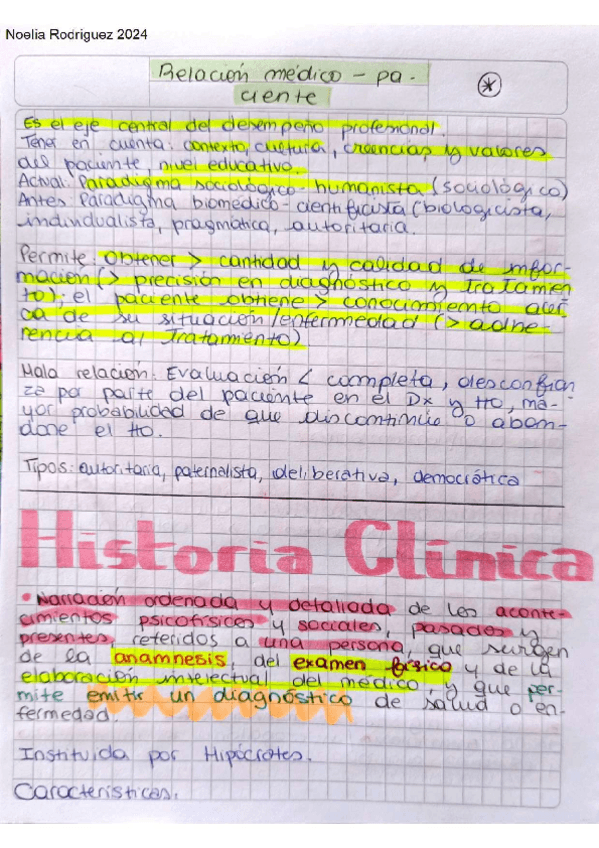 Noelia Rodriguez 2024
Relación médico - pa-
ciente
*
Es el eje central del desempeño profesional.
Tener en cuenta: contexto, cultura, creencias y valores
del paciente, nivel educativo.
Actual: Paradigma sociológico - humanista (sociológico)
Antes: Paradigma biomédico - cientificista (biologicista,
individualista, pragmática, autoritaria.
Permite: obtener > cantidad y calidad de infor-
mación (> precisión en diagnóstico y tratamien
to); el paciente obtiene > conocimiento acer
ca de su situación/enfermedad (> adhe-
rencia al tratamiento)
Mala relación: Evaluación < completa, desconfian
za por parte del paciente en el Dx y tto, ma-
yor probabilidad de que discontinúe o aban-
done el tto.
Tipos: autoritaria, paternalista, deliberativa, democrática
Historia Clínica
• Narración ordenada y detallada de los aconte-
cimientos psicofísicos y sociales, pasados y
presentes, referidos a una persona, que surgen
de la anamnesis, del examen físico y de la
elaboración intelectual del médico, y que per-
mite emitir un diagnóstico de salud o en-
fermedad.
Instituida por Hipócrates.
Características: